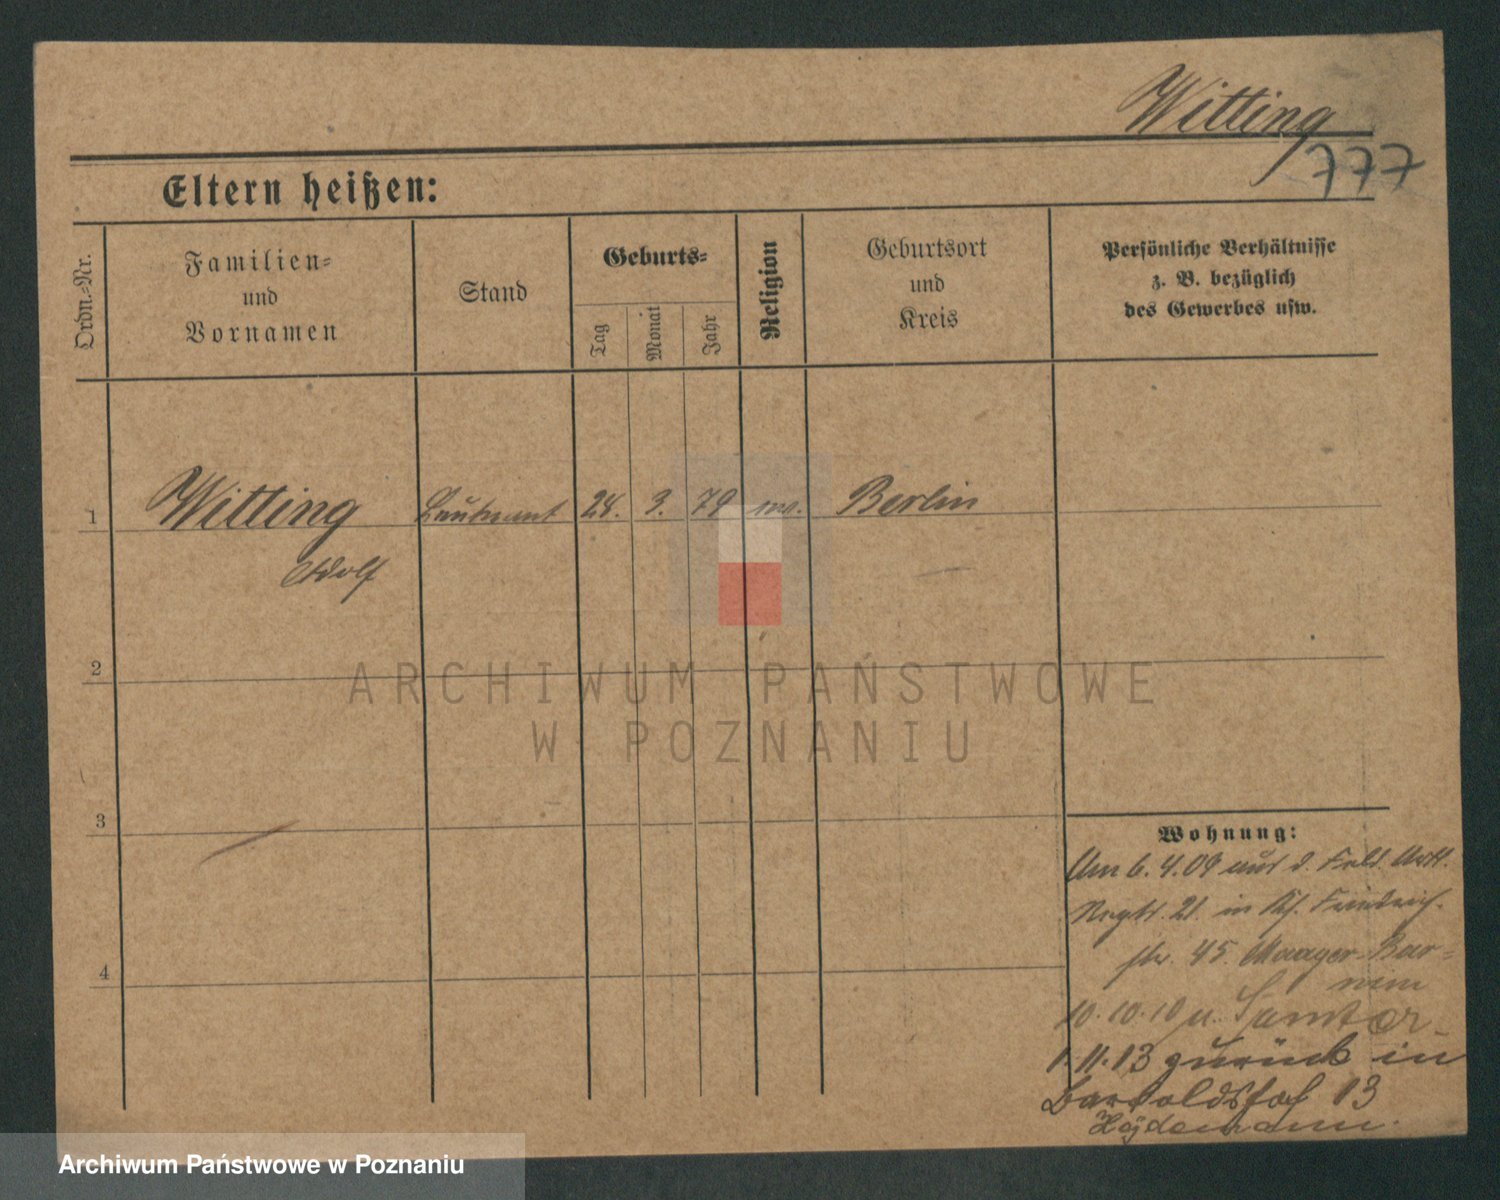 Witting
777
Eltern heißen:
Ordn.-Nr.
Familien-
und
Vornamen
Stand
Geburts-
Tag
Monat
Jahr
Religion
Geburtsort
und
Kreis
Persönliche Verhältnisse
z. B. bezüglich
des Gewerbes usw.
1
Witting
Leutnant
24. 3. 79
Berlin
Adolf
2
ARCHIWUM PAŃSTWOWE
W POZNANIU
3
4
Wohnung:
Am 6.4.09 aus d. Feld Artl.
Regts. 21 in Friedrich-
str. 45.
10.10.10 n. Samter
1.11.13 zurück in
Bartoldshof 13
Heydemann.
Archiwum Państwowe w Poznaniu